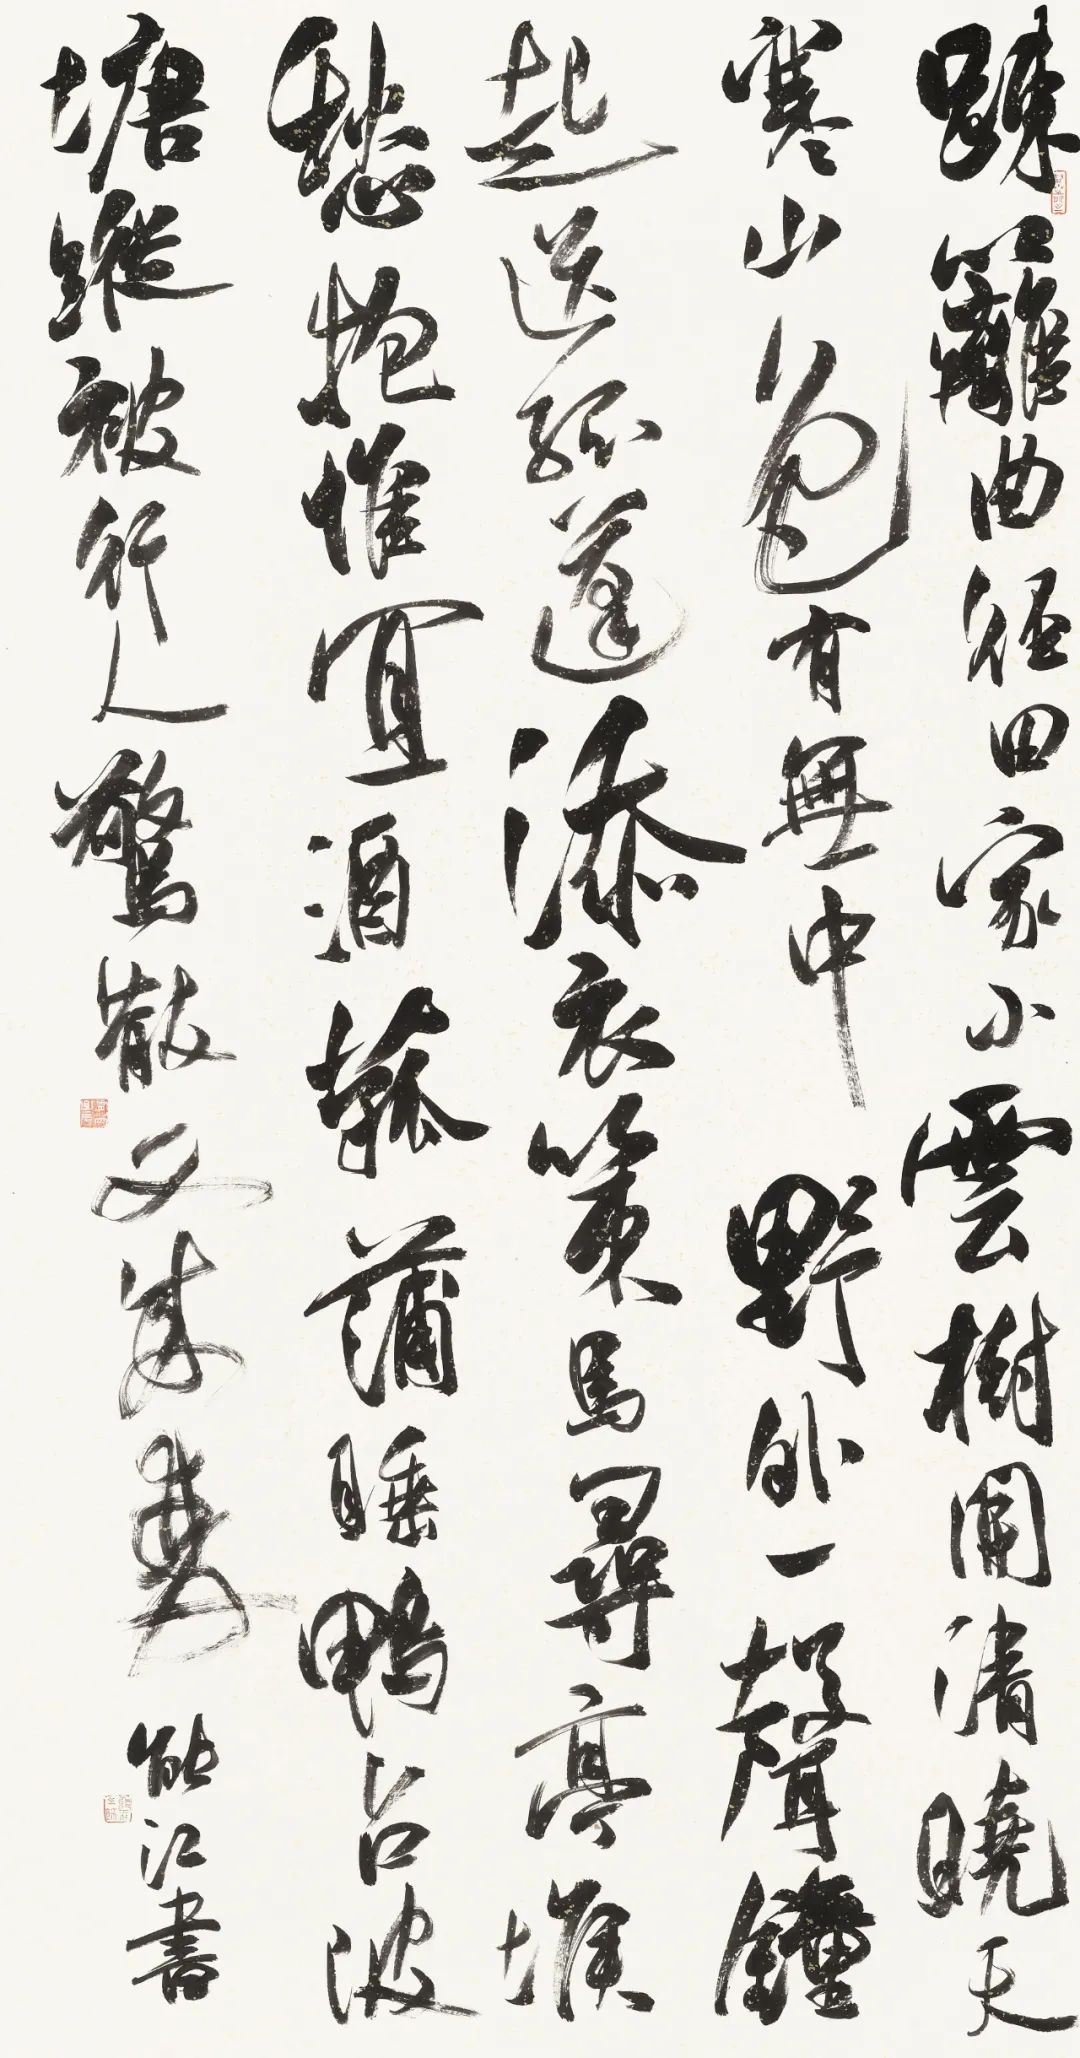 踈籬曲徑田家小雲樹開清曉天
寒山色有無中野外一聲鐘
起送孤蓬添衣策馬尋亭堠
愁抱惟宜酒菰蒲睡鴨占陂
塘蹤被行人驚散又成雙
能江書